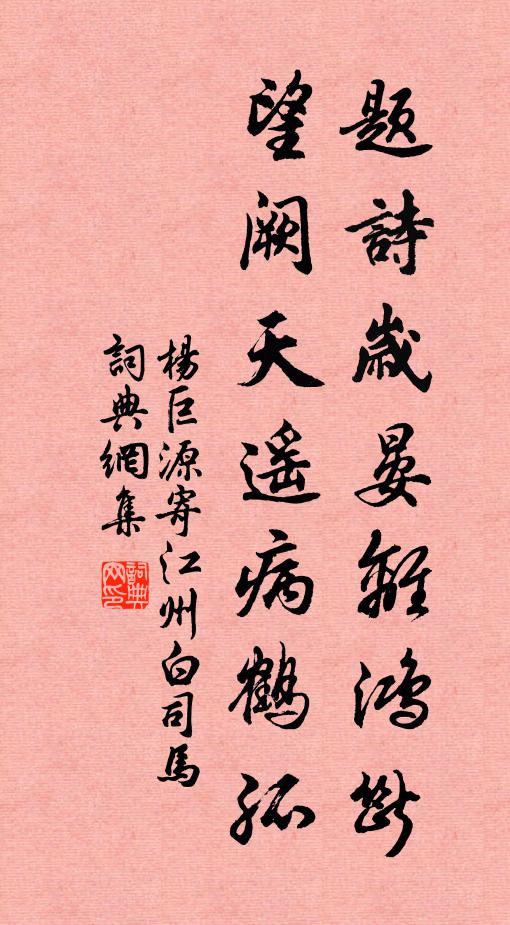 題詩歲晏離鴻斷
望闕天遥病鶴孤
楊巨源寄江州白司馬
詞典網集
詞典网印